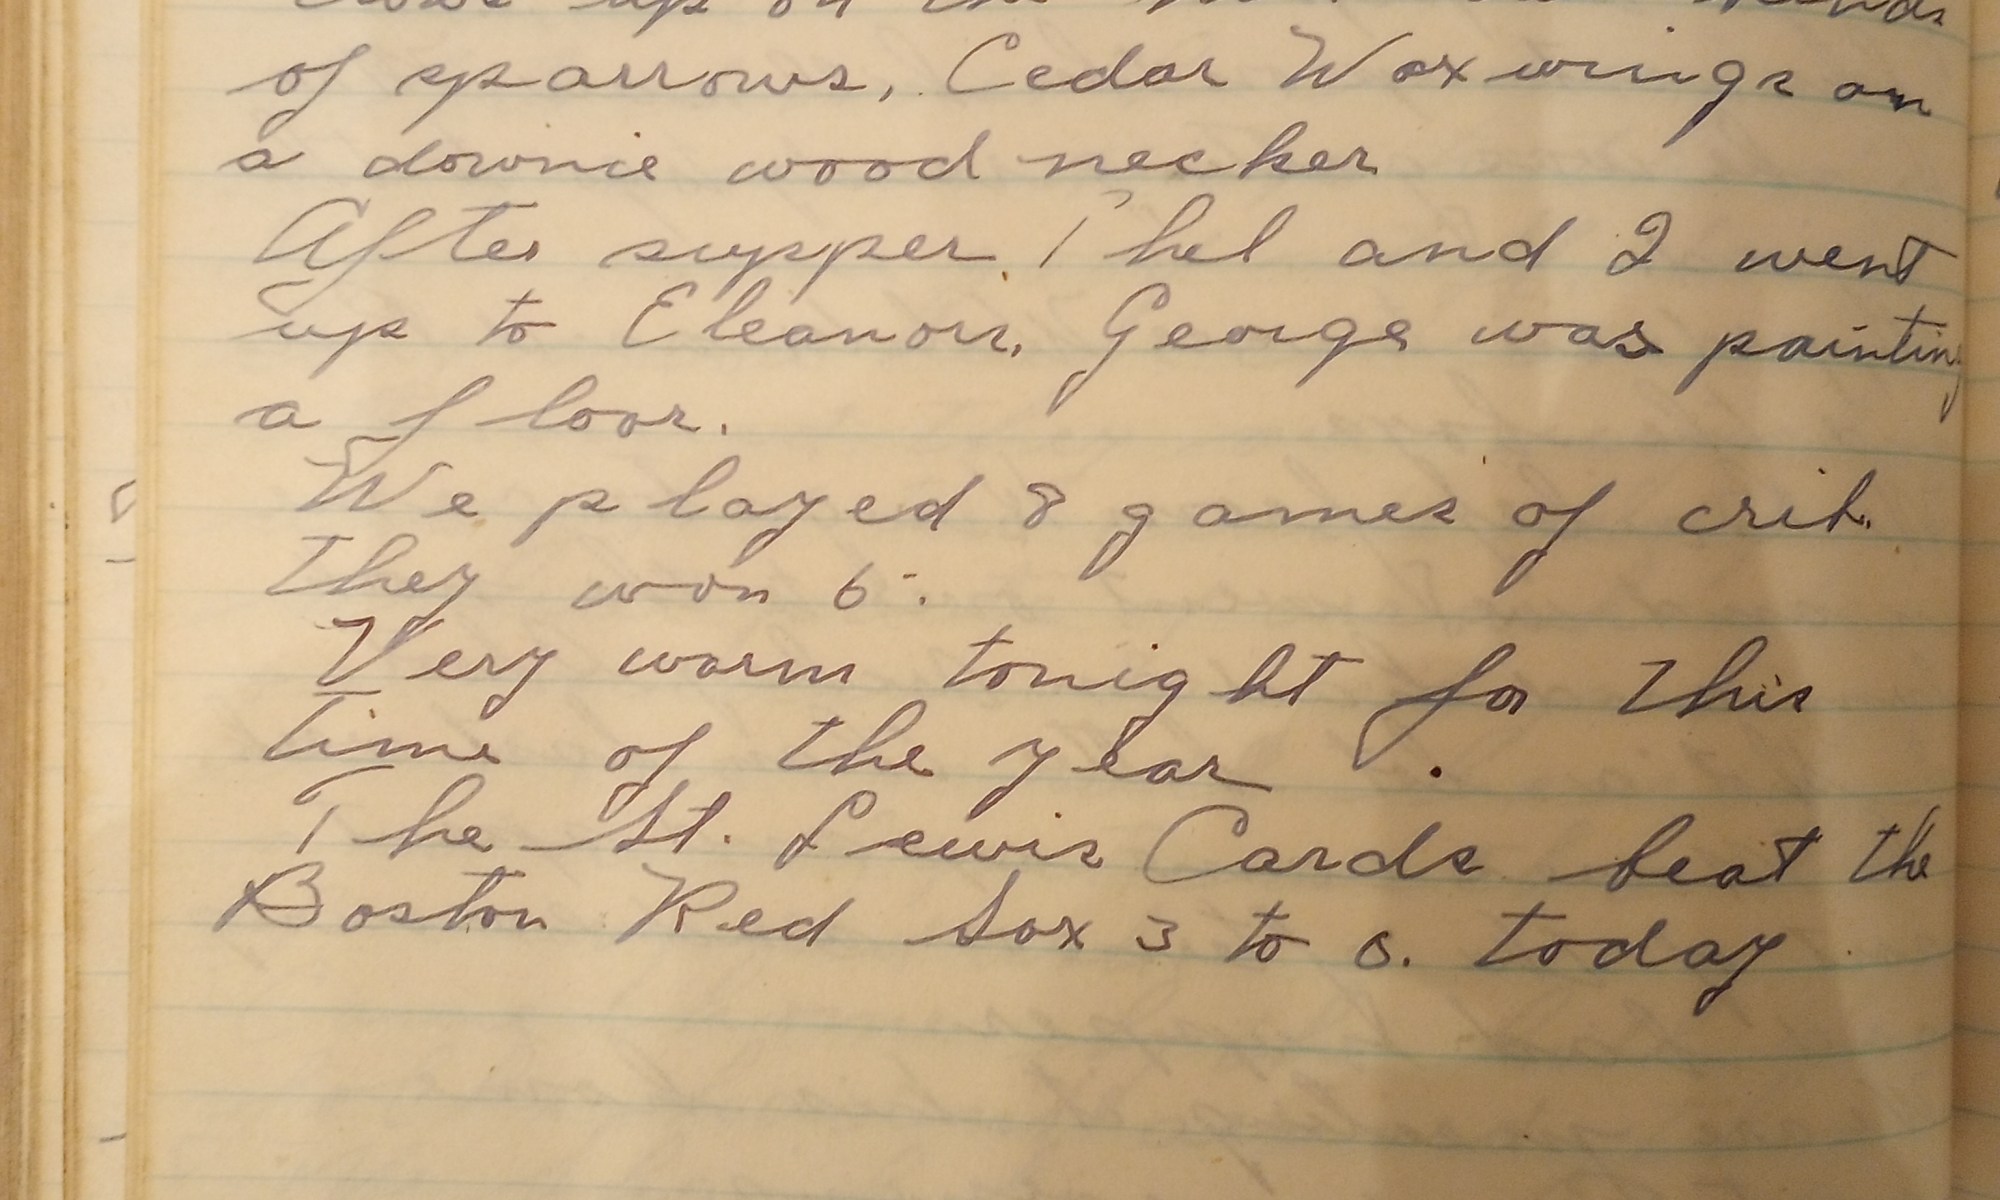 up on the
of sparrows, Cedar Waxwings an
a downie wood necker
After supper Thel and I went
up to Eleanors, George was painting
a floor.
We played 8 games of crib.
They won 6.
Very warm tonight for this
time of the year.
The St. Lewis Cards beat the
Boston Red Sox 3 to 0. today